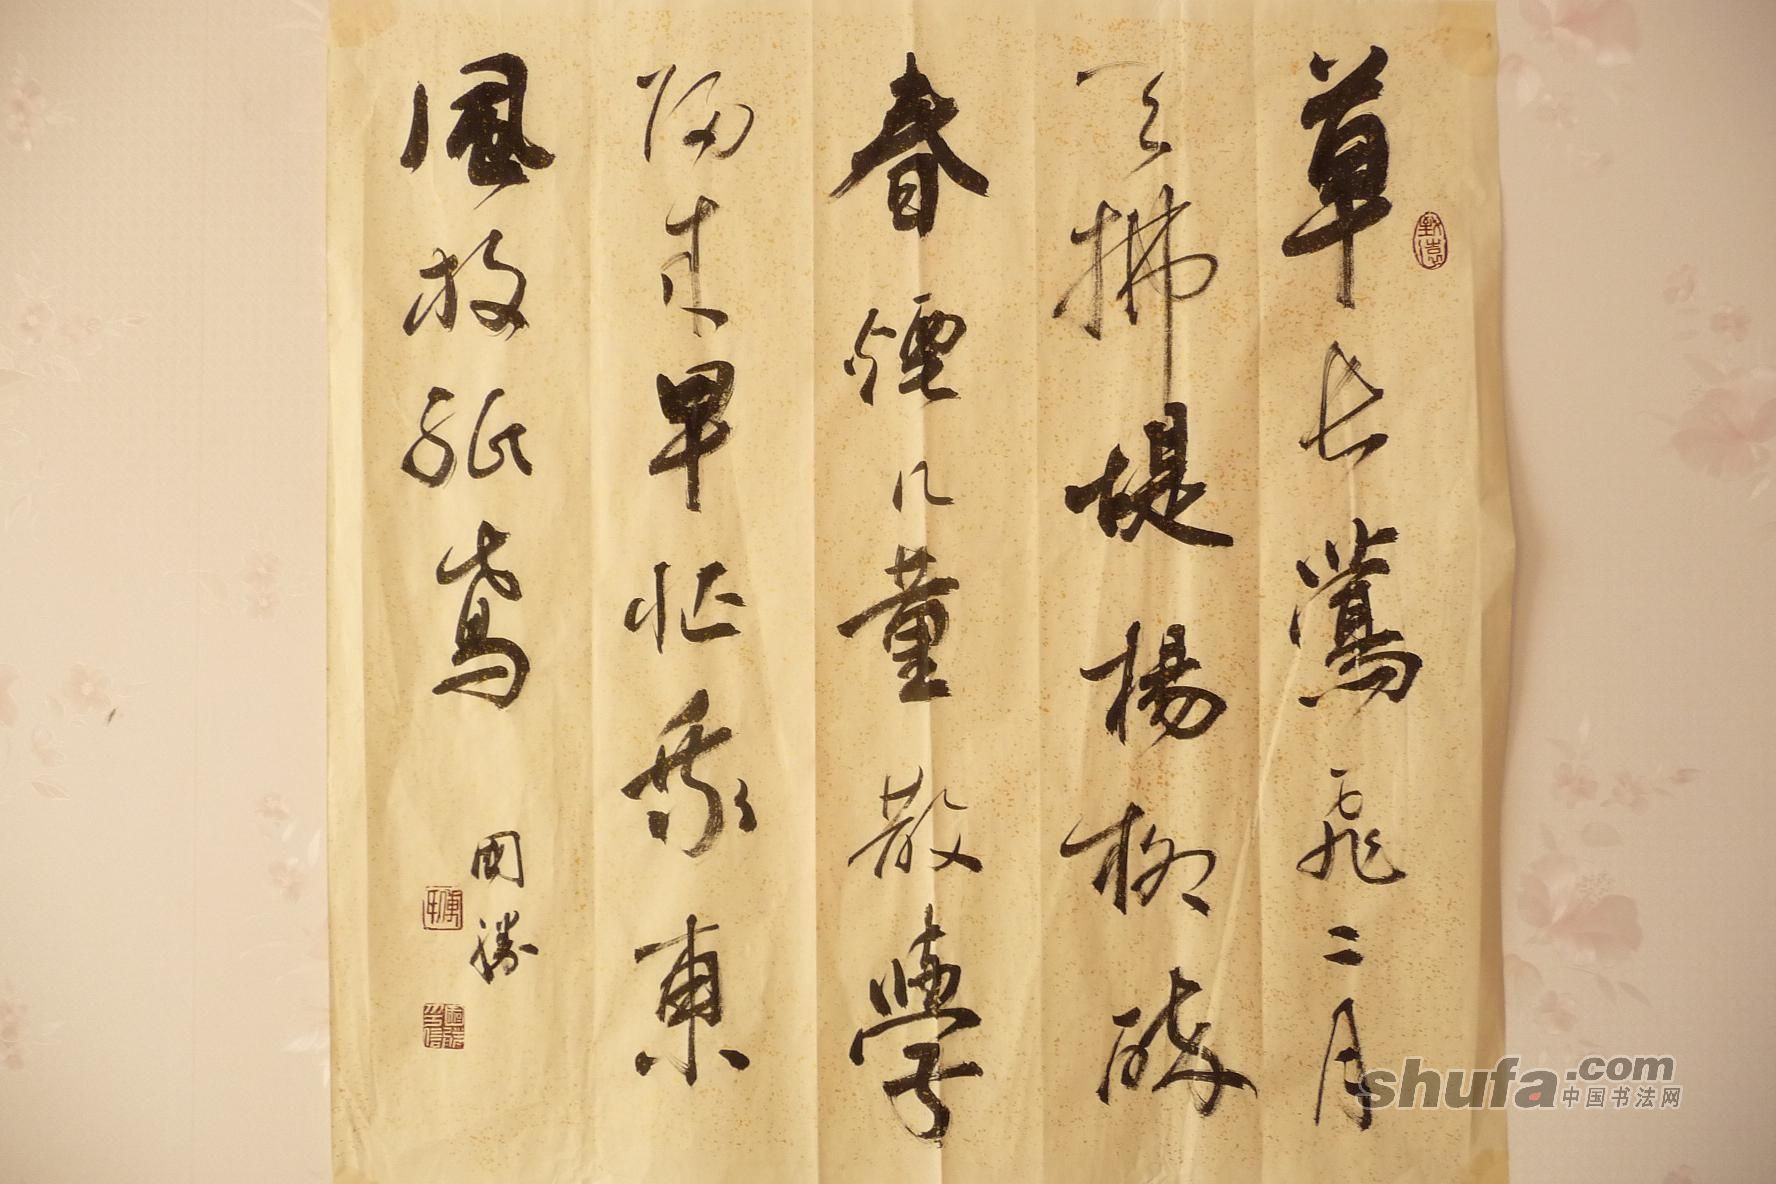 草長鶯飛二月
天拂堤楊柳醉
春煙兒童散學
歸來早忙乘東
風放紙鳶
國勝
shufa.com
中国书法网